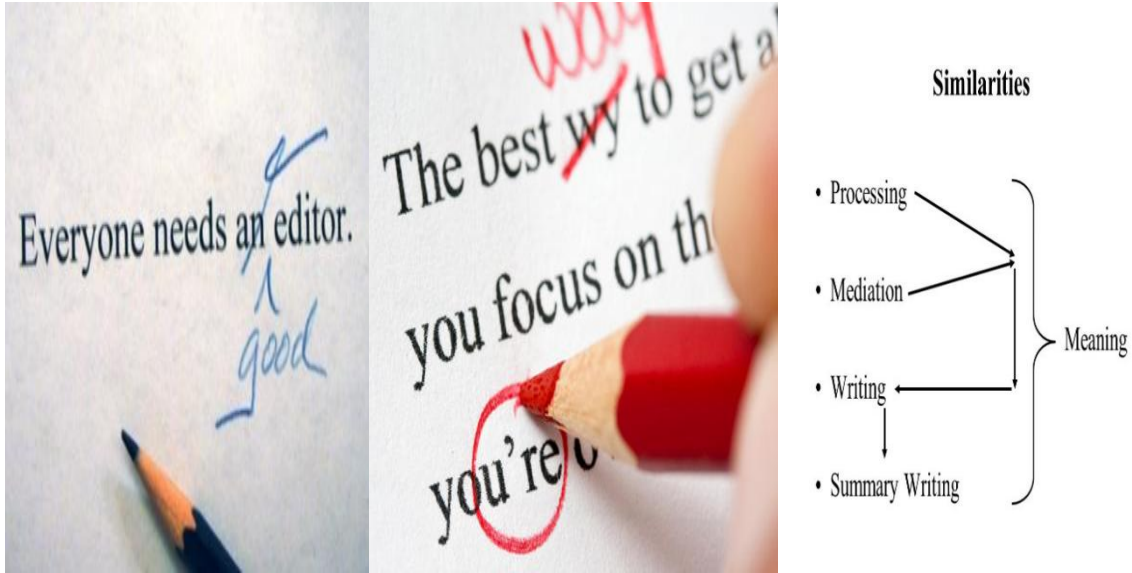 Everyone needs an editor.
good
way
The best wy to get
you focus on
you're
Similarities
• Processing
• Mediation
• Writing
• Summary Writing
Meaning